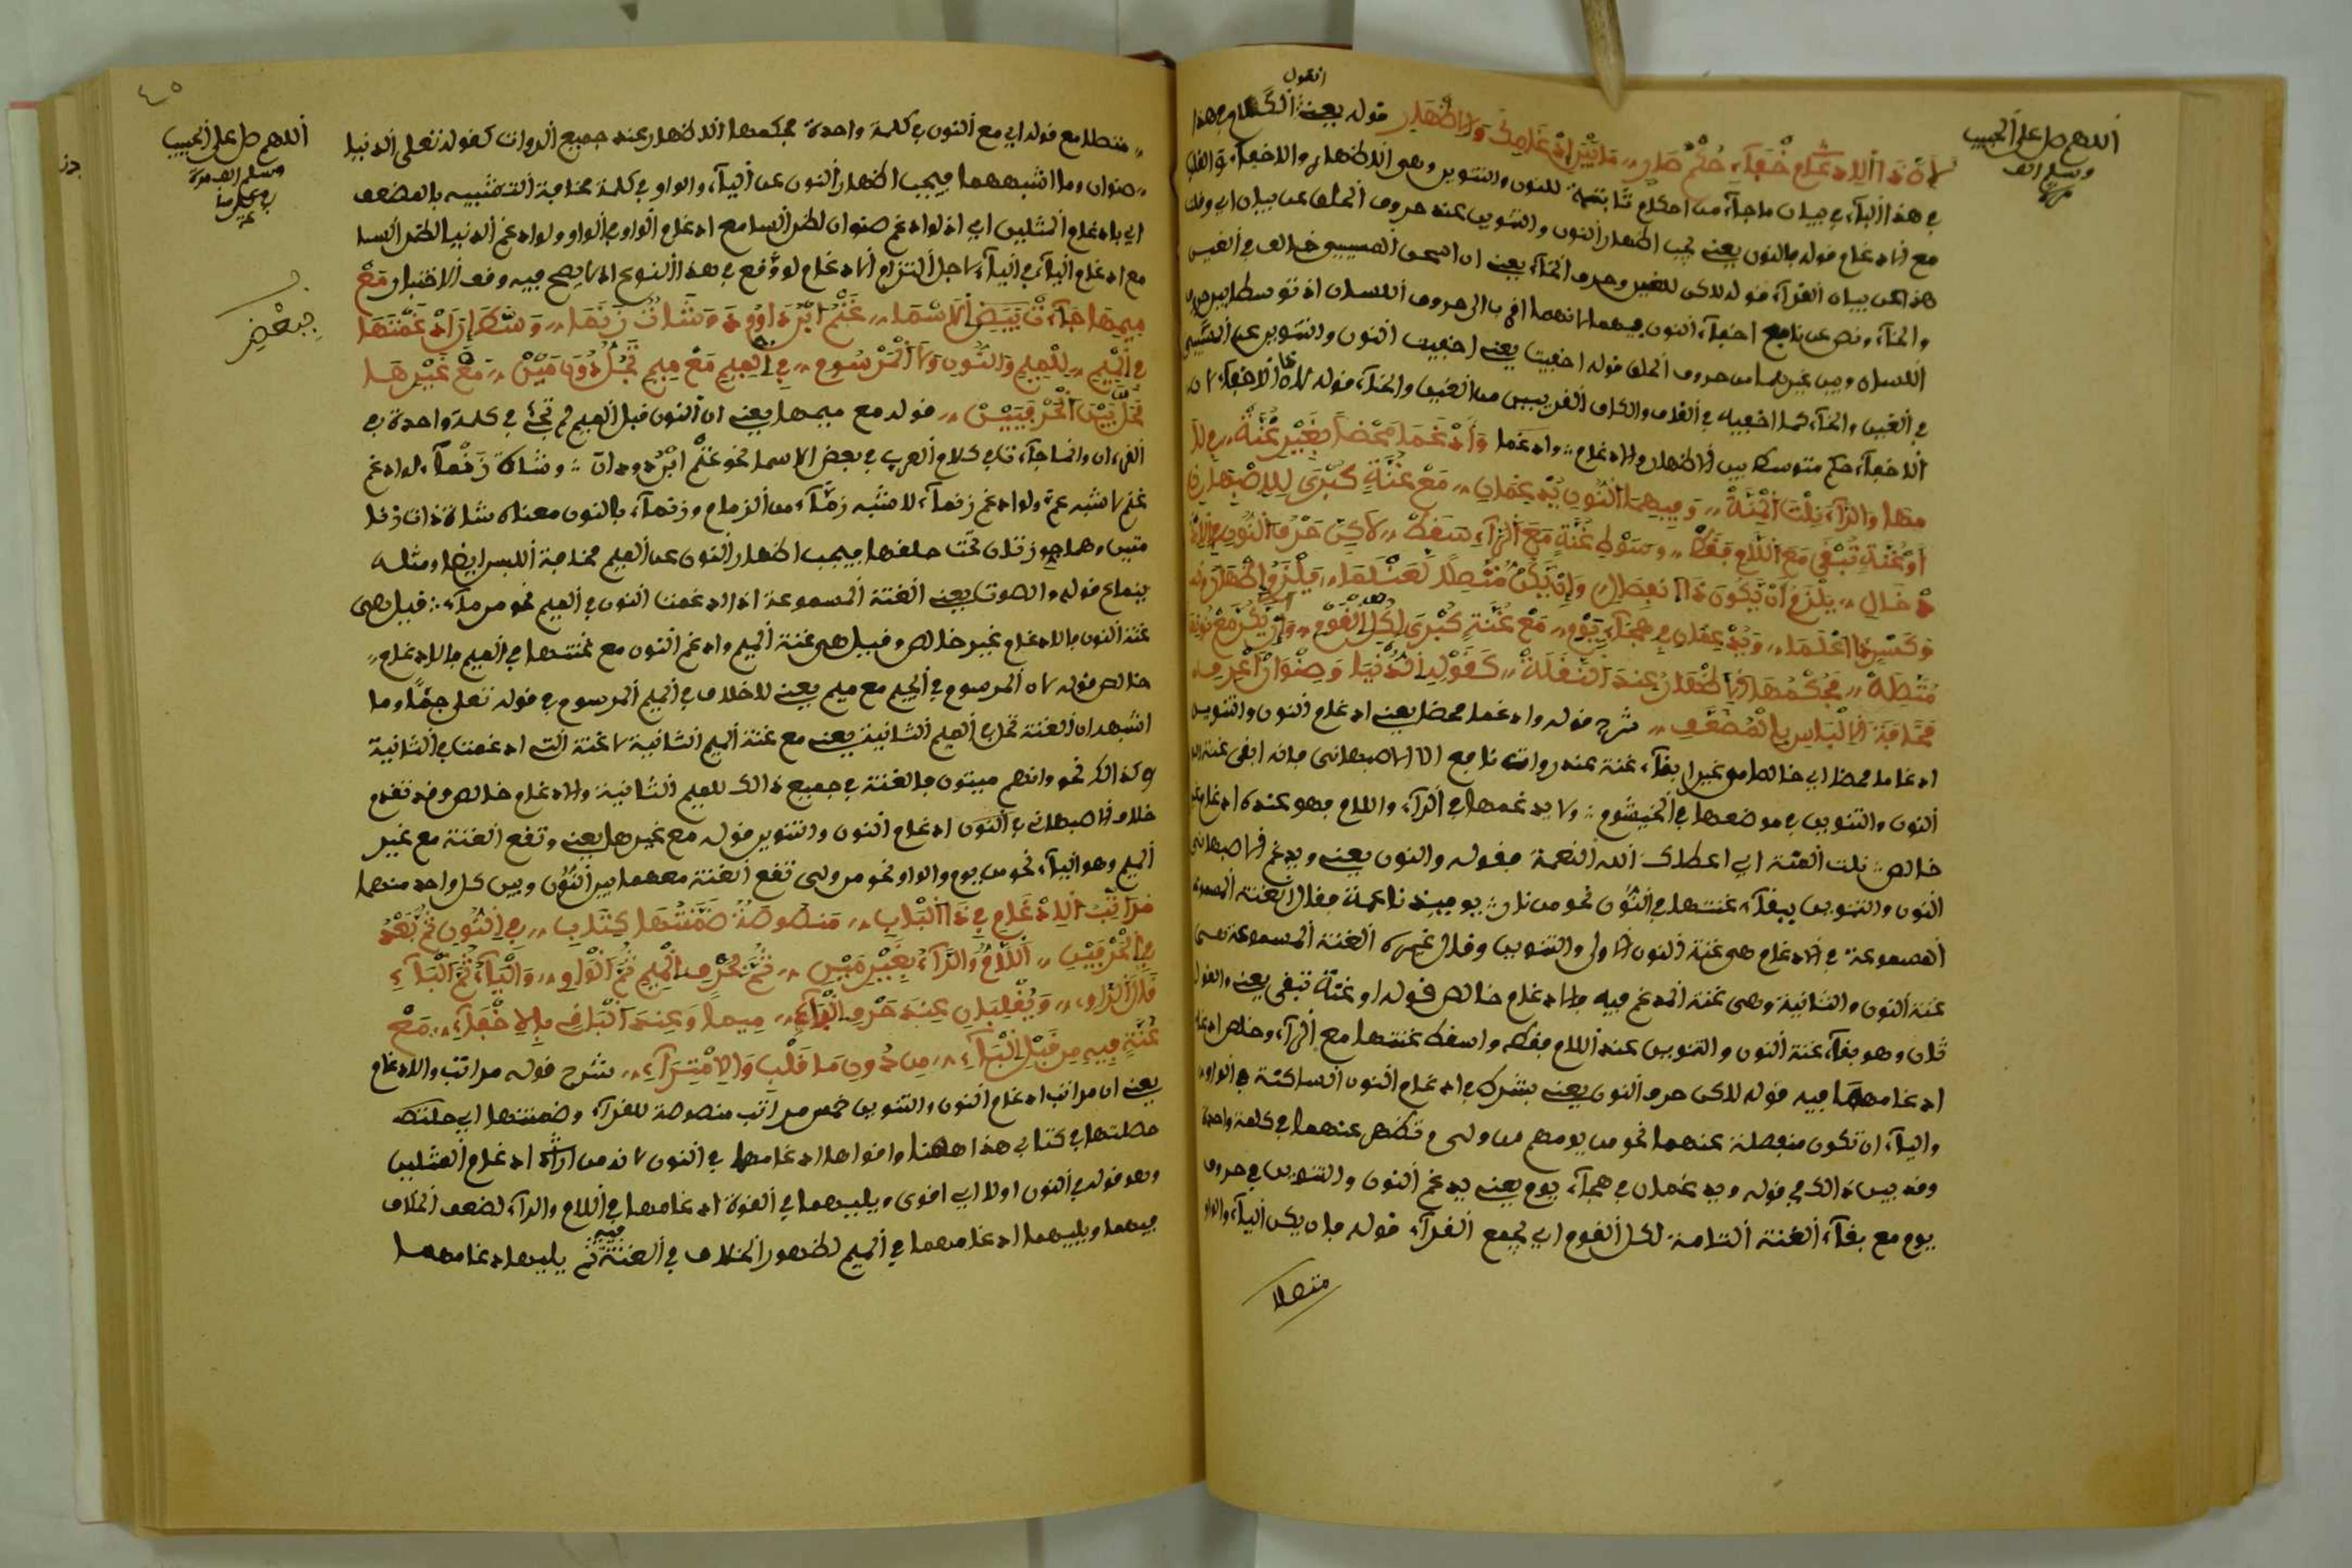 اللهم صل على الحبيب
وسلم الف
مرة
القول
لان ذا الاخفاء حكم صار ،، ما بين ادغامك والاظهار قوله يعني الكلام بهذا
في هذا الباب في بيان ما جاء من احكام للنون والتنوين وهي الاظهار والاخفاء والقلب
مع الادغام قوله بالنون يعني يجب اظهار النون والتنوين عند حروف الحلق عن بيان اي وفك
هذا عن بيان القراء قوله لاكن للغين وحرف الخاء يعني ان المسيبي خالف في الغين
والخاء ونص عن نافع اخفاء النون فيهما لانهما اقرب الى حروف اللسان اذ توسطا بين حروف
اللسان وبين غيرهما من حروف الحلق قوله اخفيت يعني اخفيت النون والتنوين عن المسيبي
في الغين والخاء كما اخفيه في القاف والكاف القريبين من الغين والخاء قوله لان ذا الاخفاء لان
الاخفاء حكم متوسط بين الاظهار والادغام وادغما وادغما محضا بغير غنة في لا
مها والراء نلت المنة ،، وفيهما النون يدغمان ،، مع غنة كبرى للاصبهان
او غنة تبقى مع اللام فقط ،، وسوط غنة مع الراء سقط ،، لاكن حرف النون في الا
دخال ،، يلزم ان يكون ذا انفصال وان يكن متصلا لعسلما ،، فيلزم اظهاره
وكسر فاعلما ،، ويدغمان في هجاء يوم ،، مع غنة كبرى لكل القوم ،، وان يكن مع نونه
متصلة ،، فحكمها الاظهار عند النقلة ،، كقوله الدنيا وصنوان اعرف
مخافة الالباس بالمضعف ،، شرح قوله وادغما محضا يعني ادغام النون والتنوين
ادغاما محضا اي خالصا من غير ابقاء غنة عند روات نافع الا الاصبهاني فانه ابقى غنة
النون والتنوين في موضعها في الخيشوم ولا يدغمها في الراء واللام فهو عنده ادغام غير
خالص نلت المنة اي اعطاك الله النعمة فقوله والنون يعني ويدغم الاصبهاني
النون والتنوين ببقاء غنتها في النون نحو من نار يوميذ ناعمة فقال الغنة المسموعة
المسموعة في الادغام هي غنة النون الاولى والتنوين وقال غيره الغنة المسموعة هي
غنة النون والثانية وهي غنة المدغم فيه والادغام خالص قوله او غنة تبقى يعني والقول
ثان وهو بقاء غنة النون والتنوين عند اللام فقط واسقط غنتها مع الراء وخلص ادغا
ادغامهما فيه قوله لاكن حرف النون يعني يشرك في ادغام النون الساكنة في الواو
والياء ان تكون منفصلة عنهما نحو من يومهم من ولي وتظهر عنهما في كلمة واحدة
وقد بين ذالك في قوله ويدغمان في هجاء يوم يعني يدغم النون والتنوين في حروف
يوم مع بقاء الغنة التامة لكل القوم اي لجميع القراء قوله وان يكن الياء والواو
متصلا
٤٥
اللهم صل على الحبيب
وسلم الف مرة
،، متصلا مع قوله اي مع النون في كلمة واحدة فحكمها الاظهار عند جميع الروات كقوله تعلى الدنيا
،، صنوان وما اشبههما فيجب اظهار النون عن الياء والواو في كلمة مخافة التشبيه بالمضعف
اي بادغام المثلين اي اذ لو ادغم صنوان لظن السامع ادغام الواو في الواو ولو ادغم الدنيا لظن السا
مع ادغام الياء في الياء لاجل التزام الادغام لو وقع في هذا النوع اذ لا يصح فيه وقف الاختبار مع
ميمها جاءت ببعض الاسما ،، غنم ابرد اود وشات زنما ،، وشطر اذ غمتها
في الميم ،، للميم والنون ولا المرسوم ،، في الميم مع ميم فجل دون مين ،، مع غيرها
تحل بين الحرفين ،، قوله مع ميمها يعني ان النون قبل الميم لم تجئ في كلمة واحدة في
القرءان وانما جاء ت في كلام العرب في بعض الاسما نحو غنم ابرد ودات وشاة زنماء لو ادغم
غنم لاشبه غم ولو ادغم زنماء لاشبه زماء من الزمام وزنماء بالنون معناه شاة ذات زنا
متين وهما جوزتان تحت حلقها فيجب اظهار النون عن الميم مخافة اللبس ايضا ومثله
ينماع قوله والصوت يعني الغنة المسموعة اذا ادغمت النون في الميم نحو من ماء قيل هي
غنة النون والادغام غير خالص وقيل هي غنة الميم وادغم النون مع غنتها في الميم والادغام
خالص قوله لان المرسوم في الميم مع ميم يعني لا خلاف في الميم المرسوم في قوله تعلى جما وما
اشبهه ان الغنة تحل في الميم الثانية يعني مع غنة الميم الثانية لا غنة التي ادغمت في الثانية
وكذالك نحو وانهم ميتون فالغنة في جميع ذالك للميم الثانية والادغام خالص وقد تقدم
خلاف الاصبهاني في النون ادغام النون والتنوين قوله مع غيرها يعني وتقع الغنة مع غير
الميم وهو الياء نحو من يوم والواو نحو من ولي تقع الغنة معهما بين النون وبين كل واحد منهما
مراتب الادغام في ذا الباب ،، منصوصة ضمنتها كتاب ،، في النون ثم بعد
في الحرفين ،، اللام والراء بغير مين ،، ثم لحرف الميم ثم الواو ،، والياء ثم الياء
قال الراو ،، ويقلبان عند حرف الباء ،، ميما وعند الباق بالاخفاء ،، مع
غنة فيه من قبل الباء ،، من دون ما قلب والامتراء ،، شرح قوله مراتب والادغام
يعني ان مراتب ادغام النون والتنوين خمس مراتب منصوصة للقراء وضمنتها اي جعلتها
حصلتها في كتابي هذا ههنا واقواها ادغامها في النون لانه من ادغام المثلين
وهو قوله في النون اولا اي اقوى ويليهما في القوة ادغامها في اللام والراء لضعف الخلاف
فيهما ويليهما ادغامهما في الميم لظهور الخلاف في الغنة ثم يليها ادغامهما